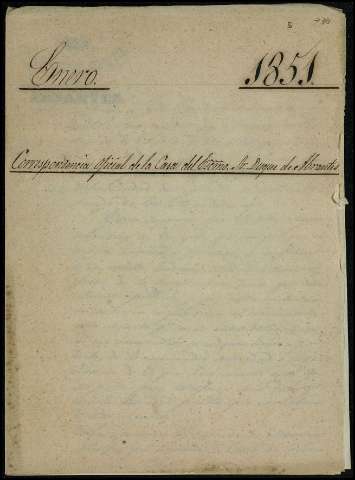 Enero. 1851.
Correspondencia oficial de la Casa del Excmo. Sr. Duque de Abrantes.